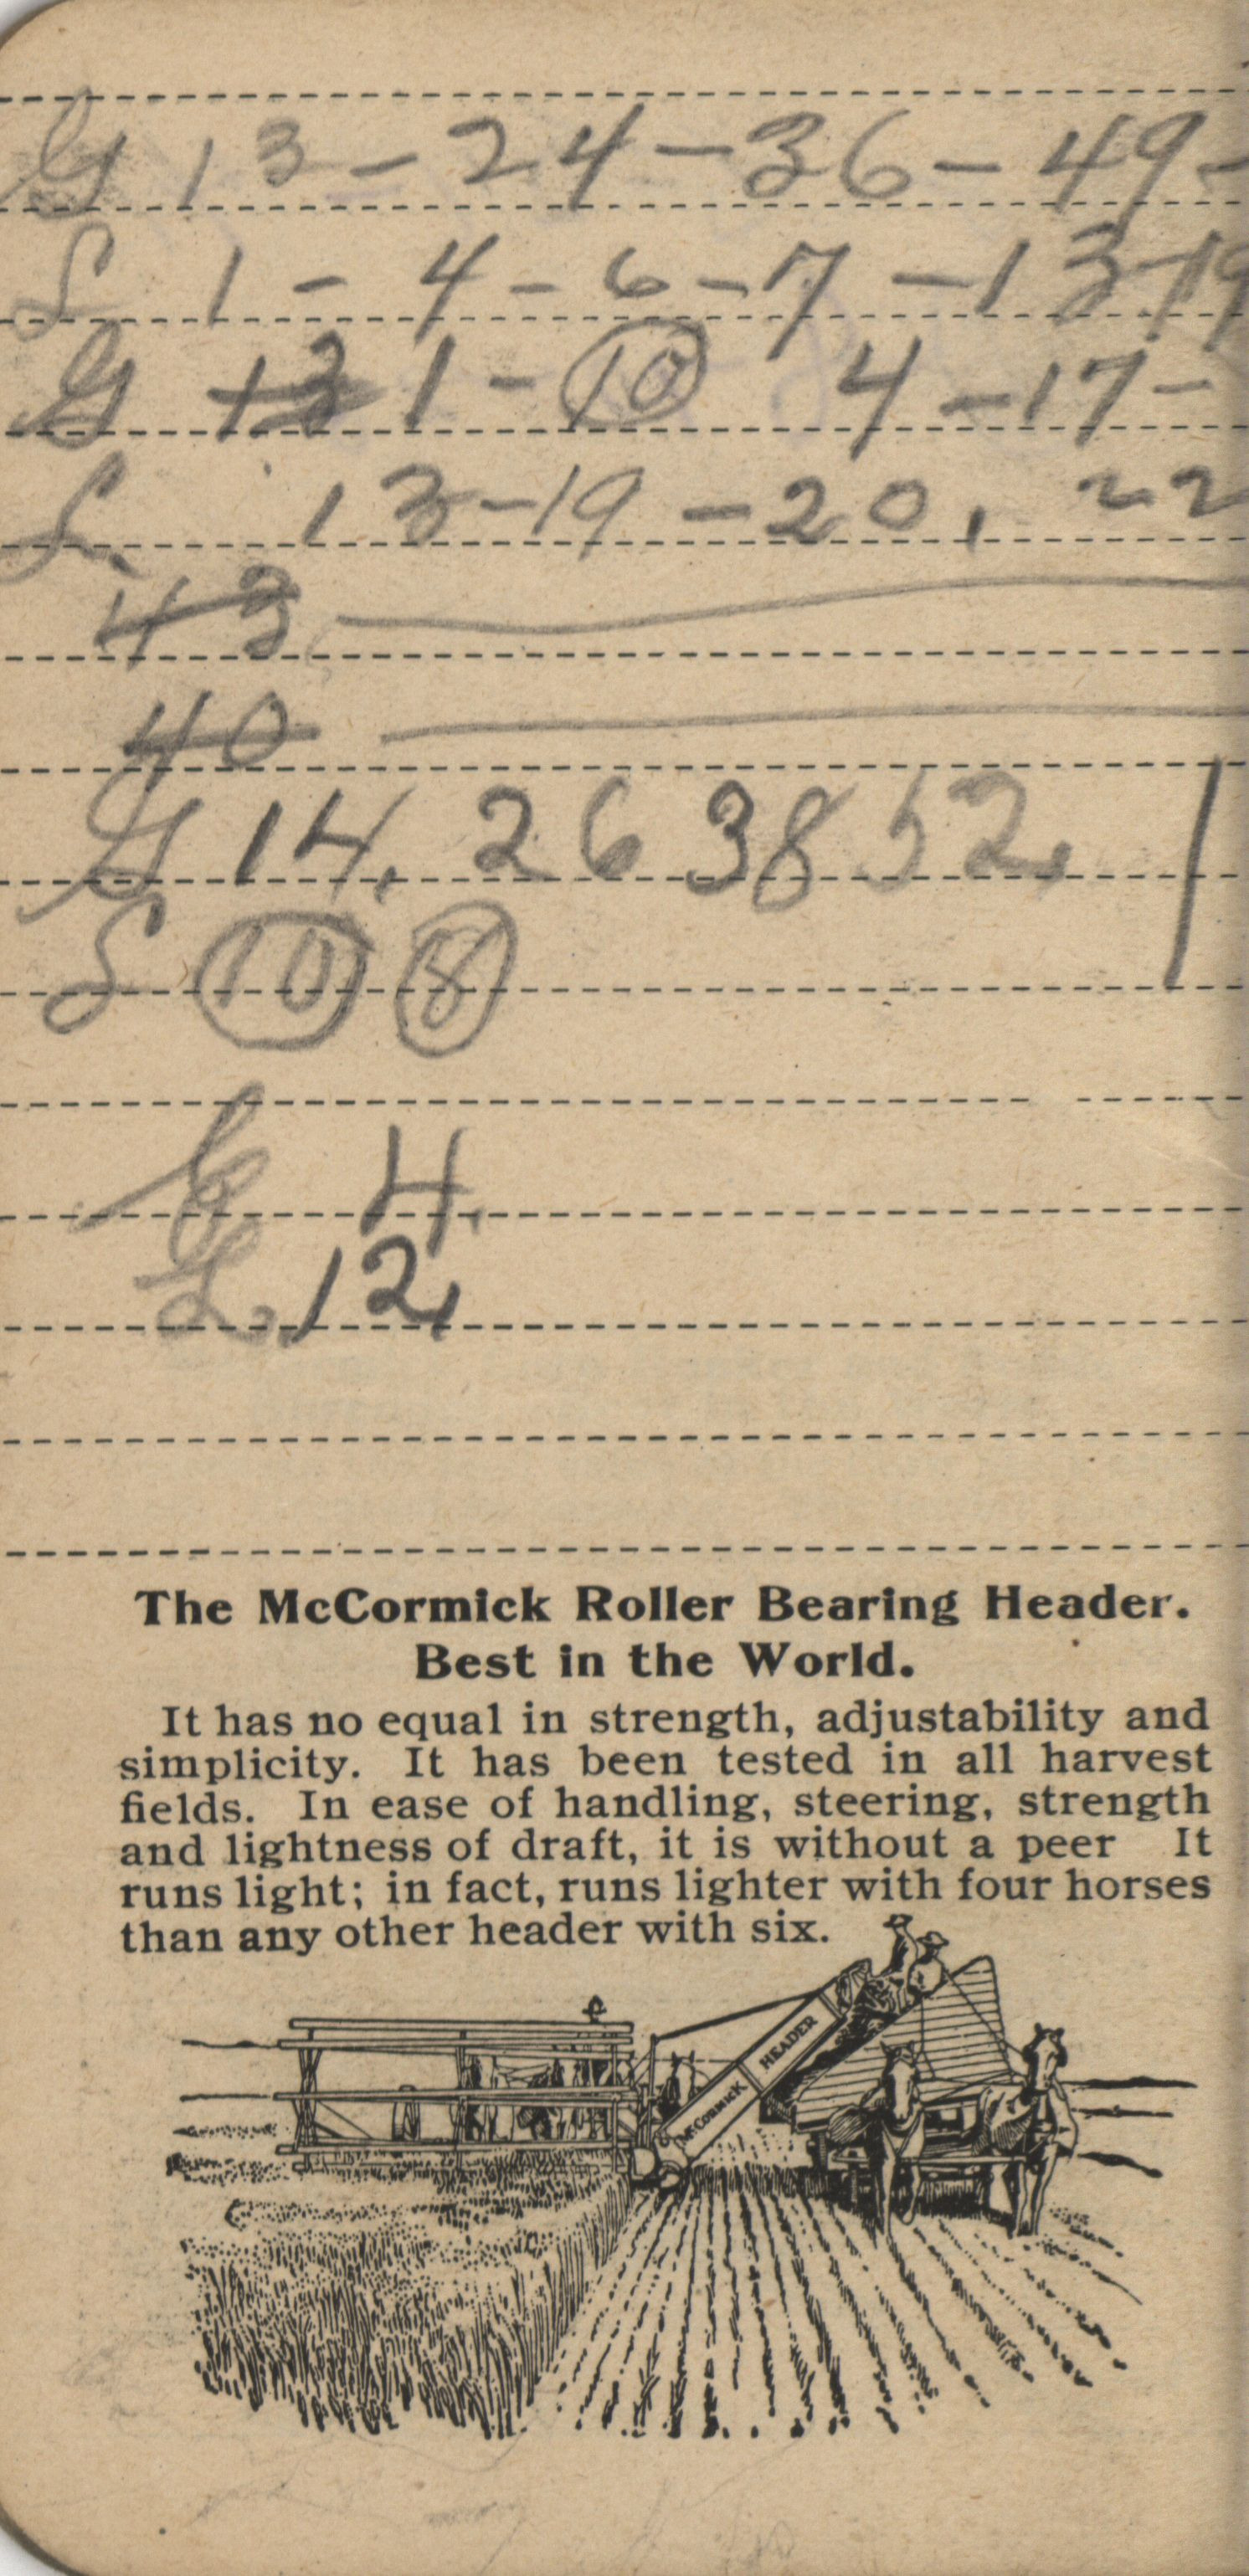 G 13 - 24 - 36 - 49 -
S 1 - 4 - 6 - 7 - 13 - 19
G 13 1 - 10 4 - 17 -
S. 13 - 19 - 20, 22
43
40
G 14. 26 38 52.
S 10 8
G 4.
S. 12.
The McCormick Roller Bearing Header.
Best in the World.
It has no equal in strength, adjustability and
simplicity. It has been tested in all harvest
fields. In ease of handling, steering, strength
and lightness of draft, it is without a peer It
runs light; in fact, runs lighter with four horses
than any other header with six.
HEADER
McCORMICK